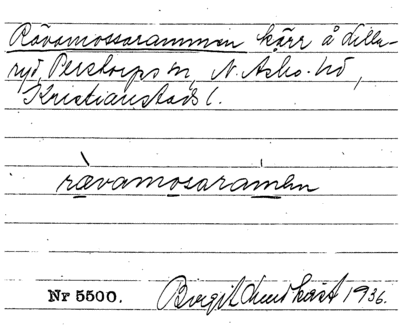 Rävamossarammen kärr å Lilla-
ryd, Perstorps sn, N. Åsbo hd,
Kristianstads l.
rävamosaramen
Nr 5500. Birgit Lundkvist 1936.